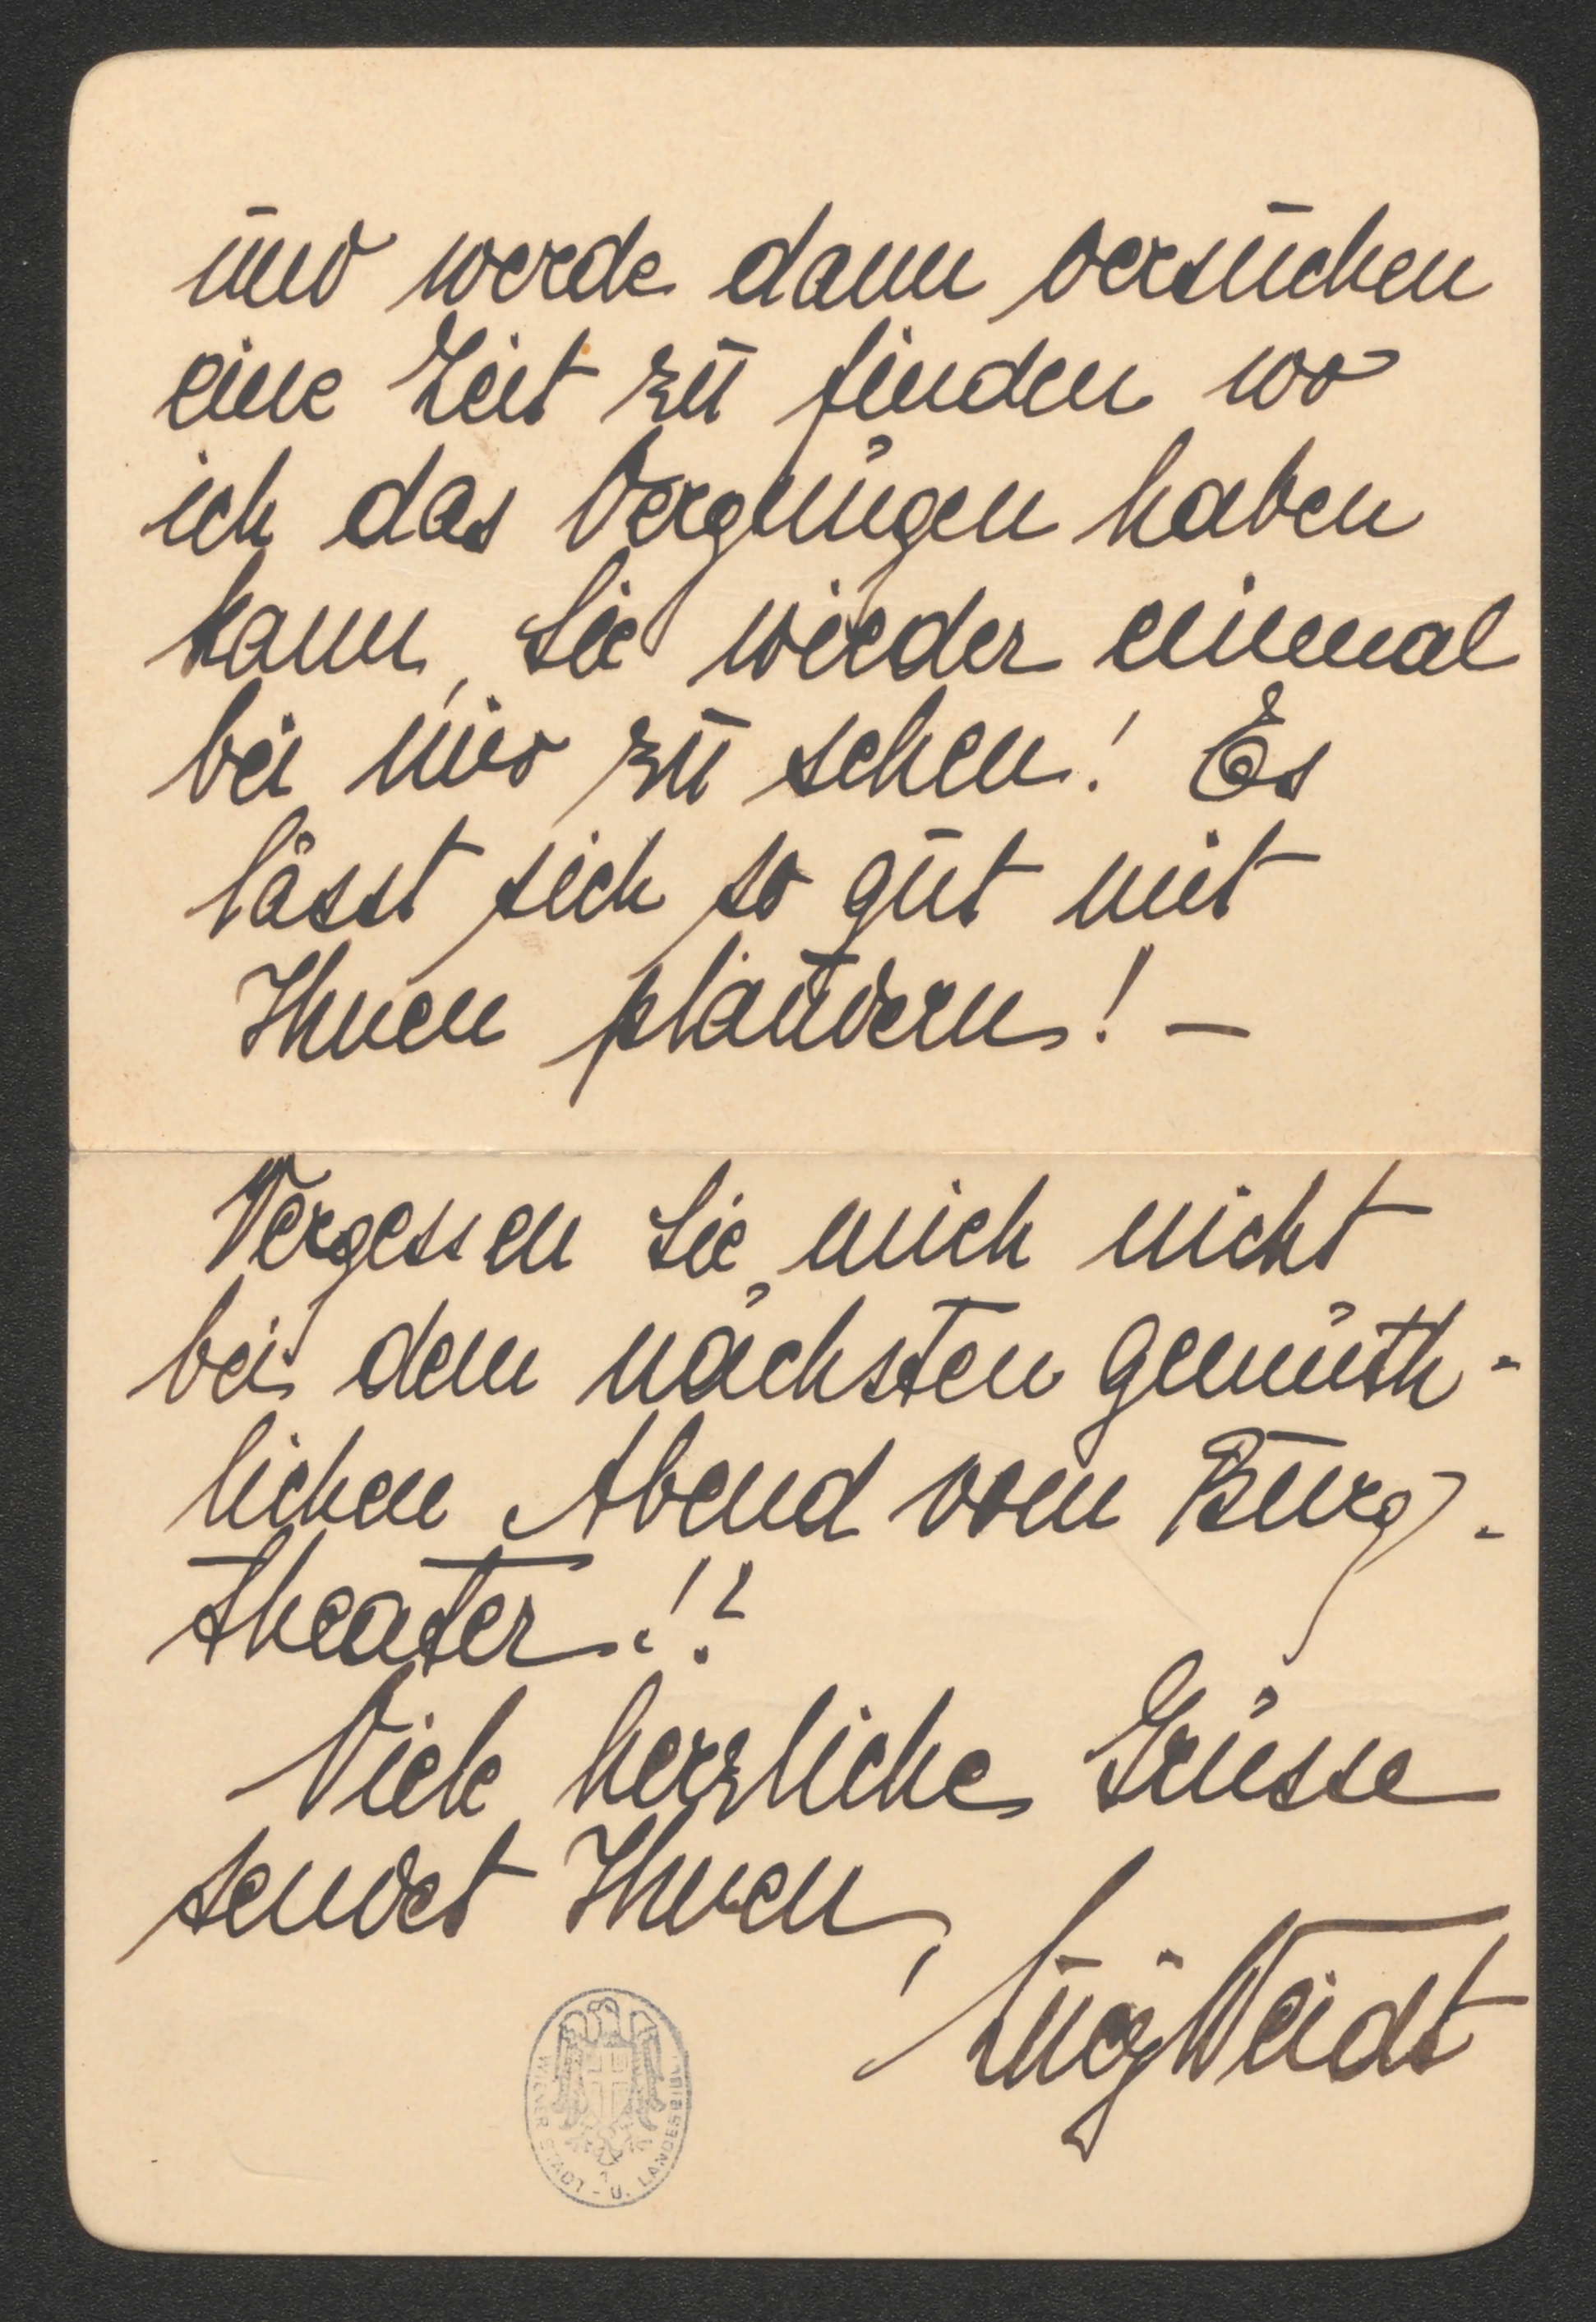 und werde dann versuchen
eine Zeit zu finden wo
ich das Vergnügen haben
kann, Sie wieder einmal
bei mir zu sehen! Es
lässt sich so gut mit
Ihnen plaudern! –
Vergessen Sie mich nicht
bei dem nächsten gemüth-
lichen Abend vom Burg-
theater!?
Viele herzliche Grüsse
sendet Ihnen,
Lucy Weidt
WIENER STADT- U. LANDESBIBL.